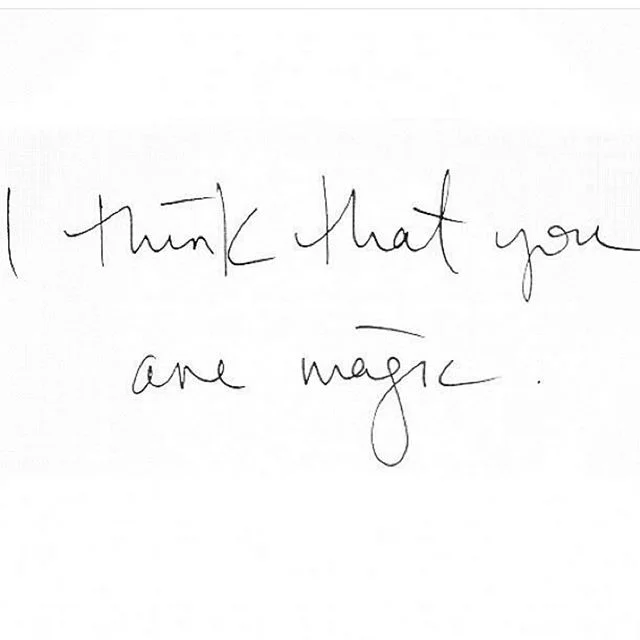 I think that you
are magic.